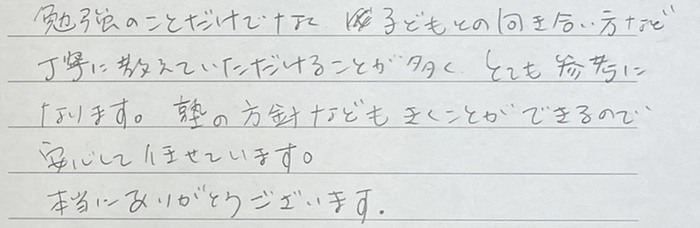 勉強のことだけでなく 子どもとの向き合い方など
丁寧に教えていただけることが多く、とても参考に
なります。塾の方針などもきくことができるので
安心して任せています。
本当にありがとうございます.